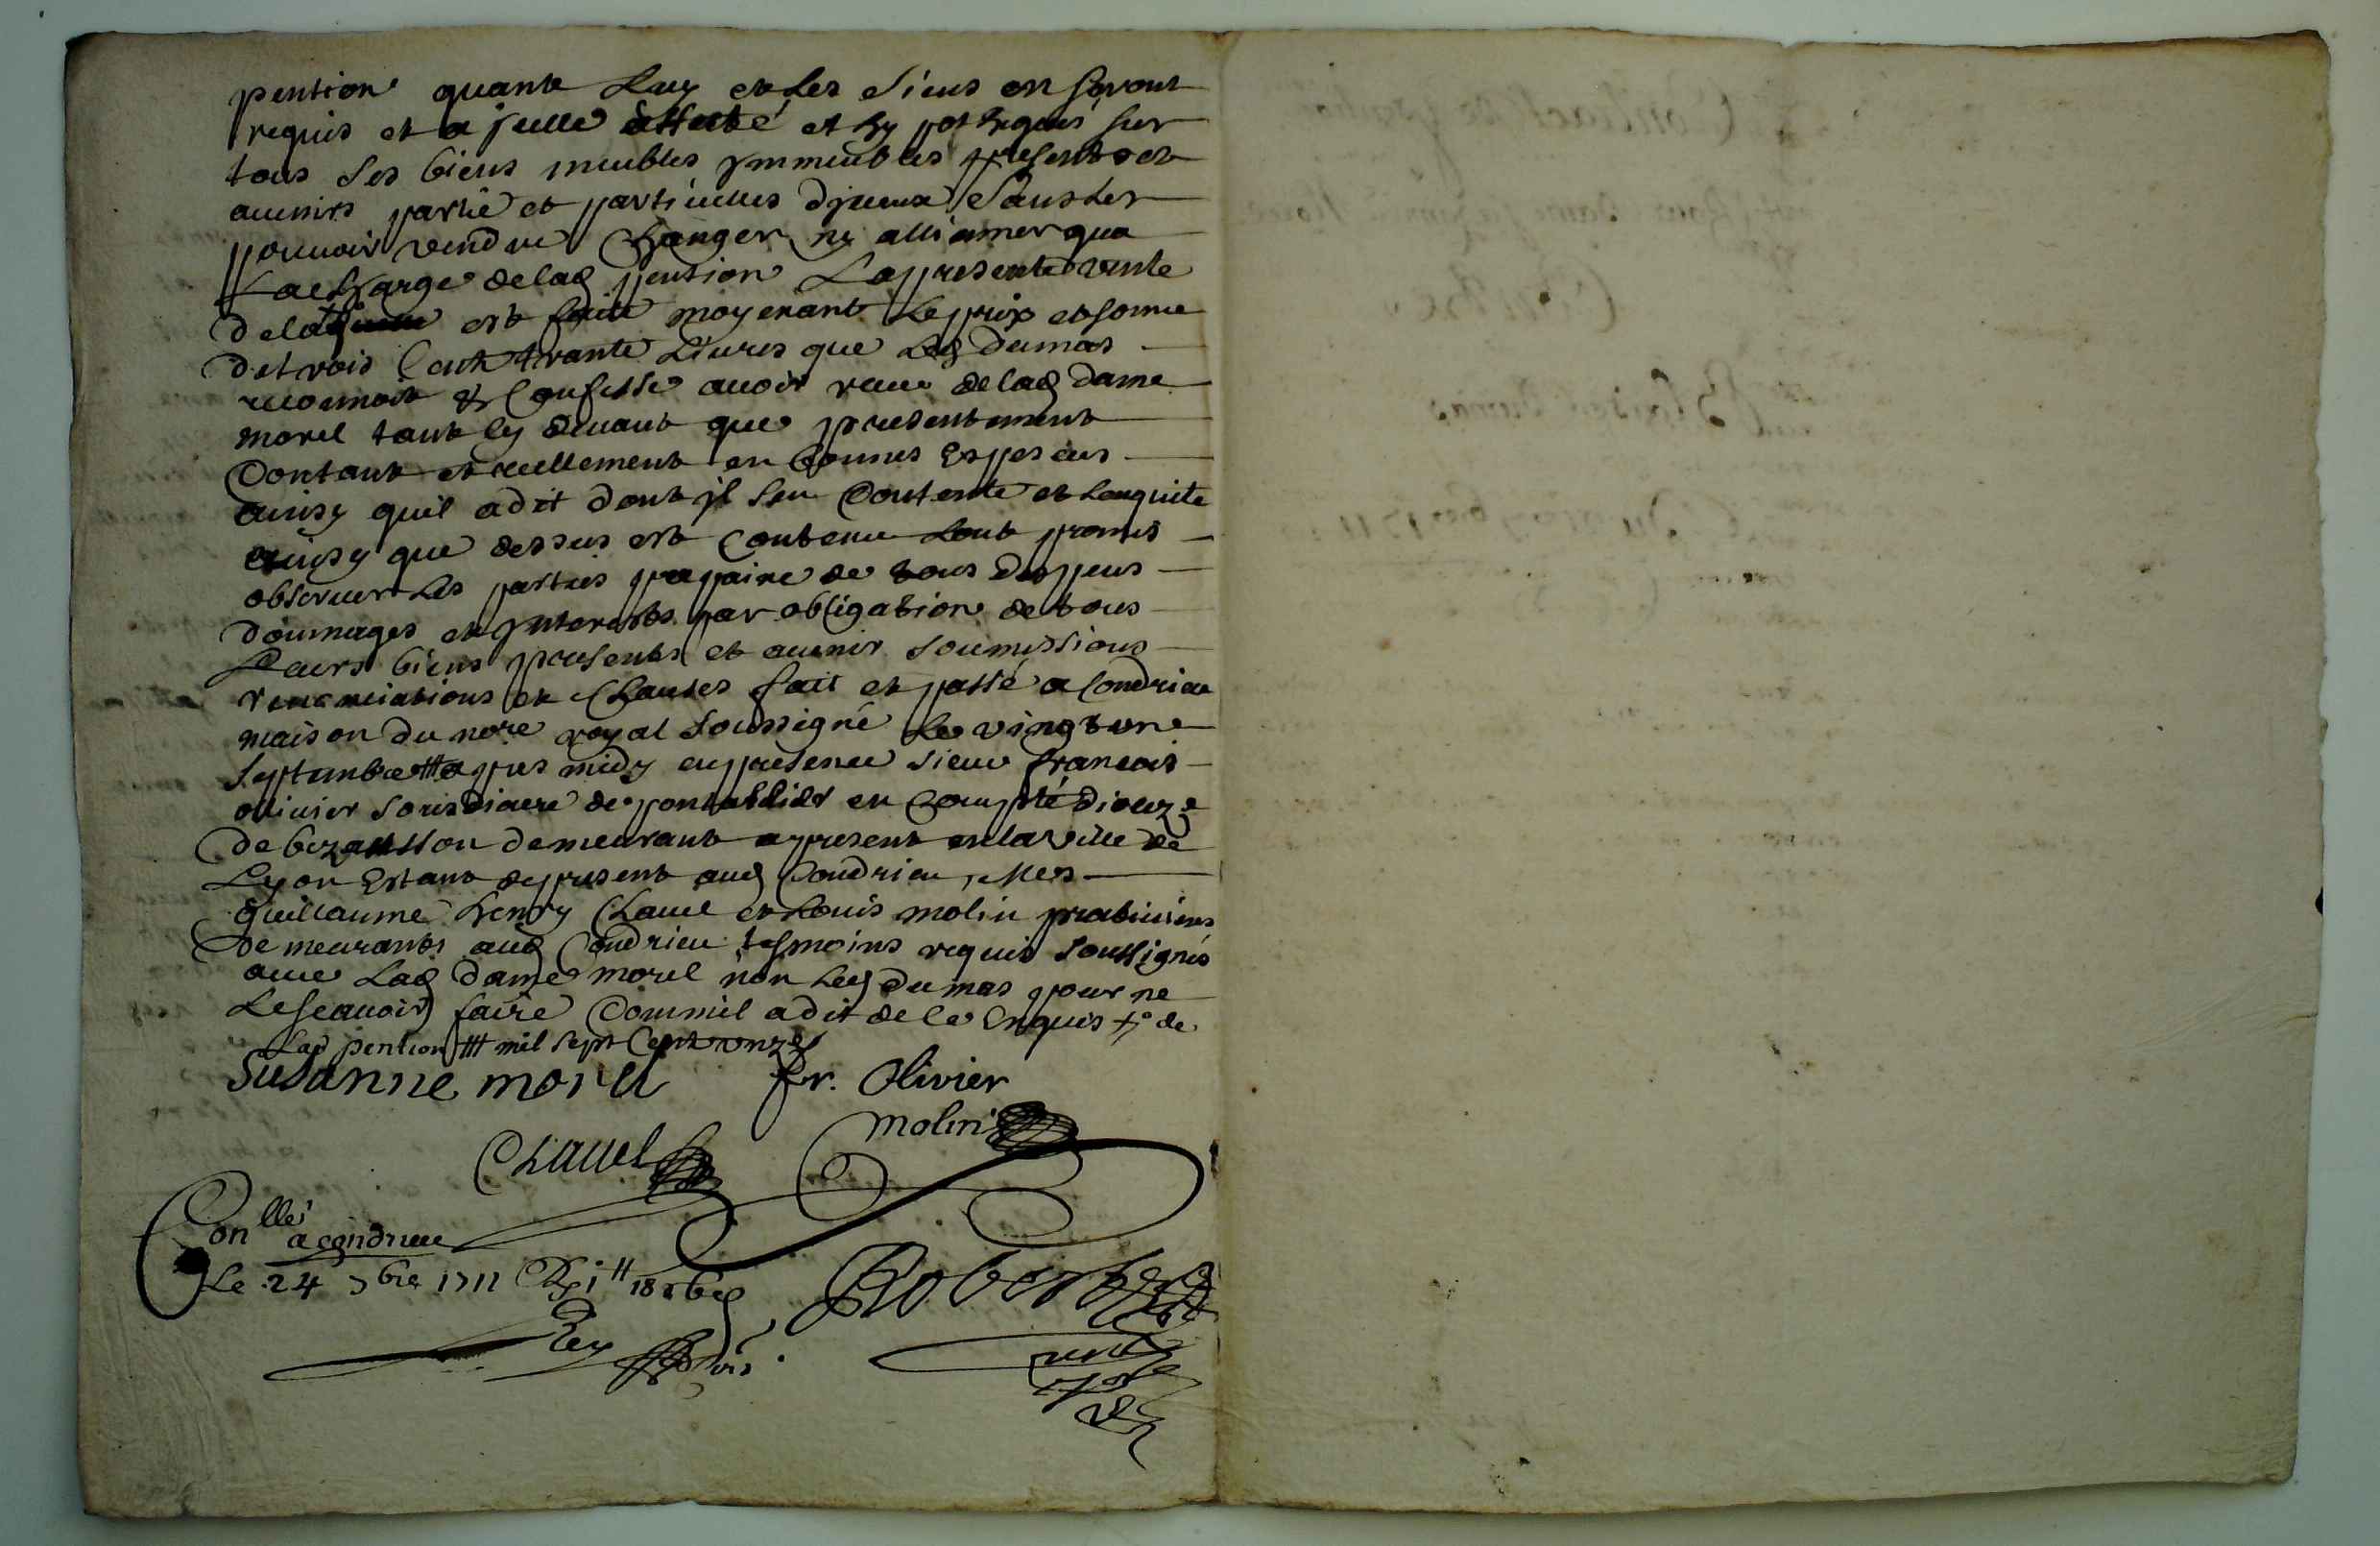 pention quant Luy et Les Siens en seront
requis et a jcelle affecté et hypothequé sur
tous Ses biens meubles ymmeubles presents et
auenirs partie et particulles djceux Sans Les
pouuoir vendre Changer ny alliener qua
La charge de lad pention La presente vente
dela est faite moyenant Le prix et somme
de trois Cent trante Liures que Led Dumas
reconnoit & Confesse auoir receu de lad Dame
morel tant cy deuant que presentement
Contant et reellement en bonnes Especes
ainsy quil a dit dont jl sen Contente et Len quite
ainsy que dessus est Contenu ont promis
obseruer Les parties a paine de tous Despens
dommages et jnterests par obligation de tous
Leurs biens presents et auenir soumissions
renonciations et Clauses fait et passé a Condrieu
maison du nore royal Soussigné Le vingt une
Septembre # apres midy en presence sieur francois
oliuier de en Compté dioceze
de bezansson demeurant a present en la ville de
Lyon Estant de present aud Condrieu, Mes
guillaume henry Chauel et Louis molin praticiens
demeurants aud Condrieu tesmoins requis soussignés
auec Lad Dame morel non Led Dumas pour ne
Le scauoir faire Comme il a dit de ce Enquis de
Lad pention # mil sept Cent onze
Susanne morel fr. Olivier
Chauel molin
Conllé a condrieu
Le 24 7bre 1711
Rey
Robert